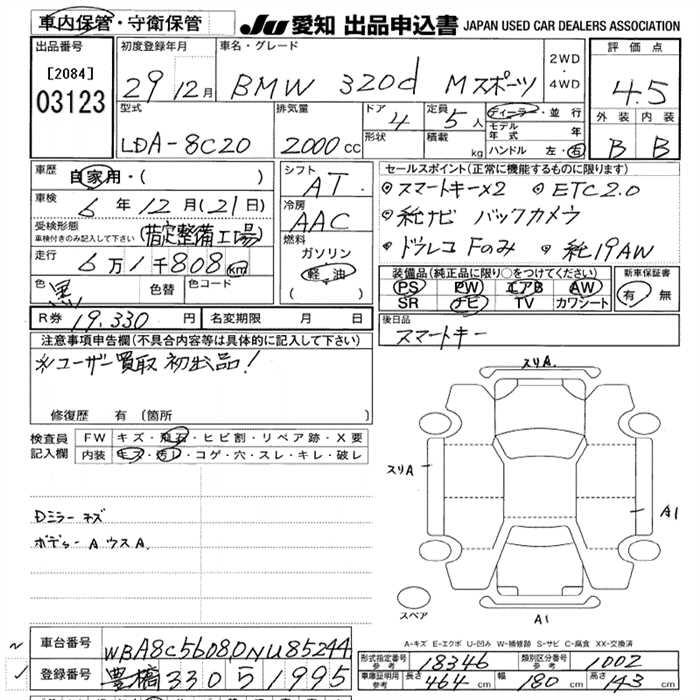 車内保管・守衛保管 JU 愛知 出品申込書 JAPAN USED CAR DEALERS ASSOCIATION
出品番号 初度登録年月 車名・グレード 評価点
[2084] 29年12月 BMW 320d Mスポーツ 2WD・4WD 4.5
03123
型式 排気量 ドア 4 定員 5人 ディーラー・並行 外装 内装
LDA-8C20 2000cc 形状 積載 kg モデル年式 年 B B
ハンドル 左・右
車歴 自家用・( ) シフト AT セールスポイント(正常に機能するものに限ります)
車検 6年12月(21日) 冷房 AAC ◎スマートキー×2 ◎ETC2.0
受検形態 (指定整備工場) ◎純ナビ バックカメラ
車検付きのみ記入して下さい 燃料 ◎ドラレコ Fのみ ◎純19AW
走行 6万1千808km ガソリン 装備品(純正品に限り○をつけてください) 新車保証書
色 黒 色替 色コード 軽油 PS PW エアB AW 有・無
( ) SR ナビ TV カワシート
R券 19,330円 名変期限 月 日 後日品
スマートキー
注意事項申告欄(不具合内容等は具体的に記入して下さい)
※ユーザー買取 初出品!
修復歴 有(箇所
検査員記入欄 FW キズ・飛石・ヒビ割・リペア跡・X要
内装 キズ・汚レ・コゲ・穴・スレ・キレ・破レ
スリA.
スリA
A1
Dミラーキズ
ボデーAウスA.
スペア A1
A-キズ E-エクボ U-凹み W-補修跡 S-サビ C-腐食 XX-交換済
車台番号 WBA8C56080NU85244 形式指定番号 参考 18346 類別区分番号 参考 1002
登録番号 豊橋330 ら 1995 車庫証明用 参考 長さ 464cm 幅 180cm 高さ 143cm